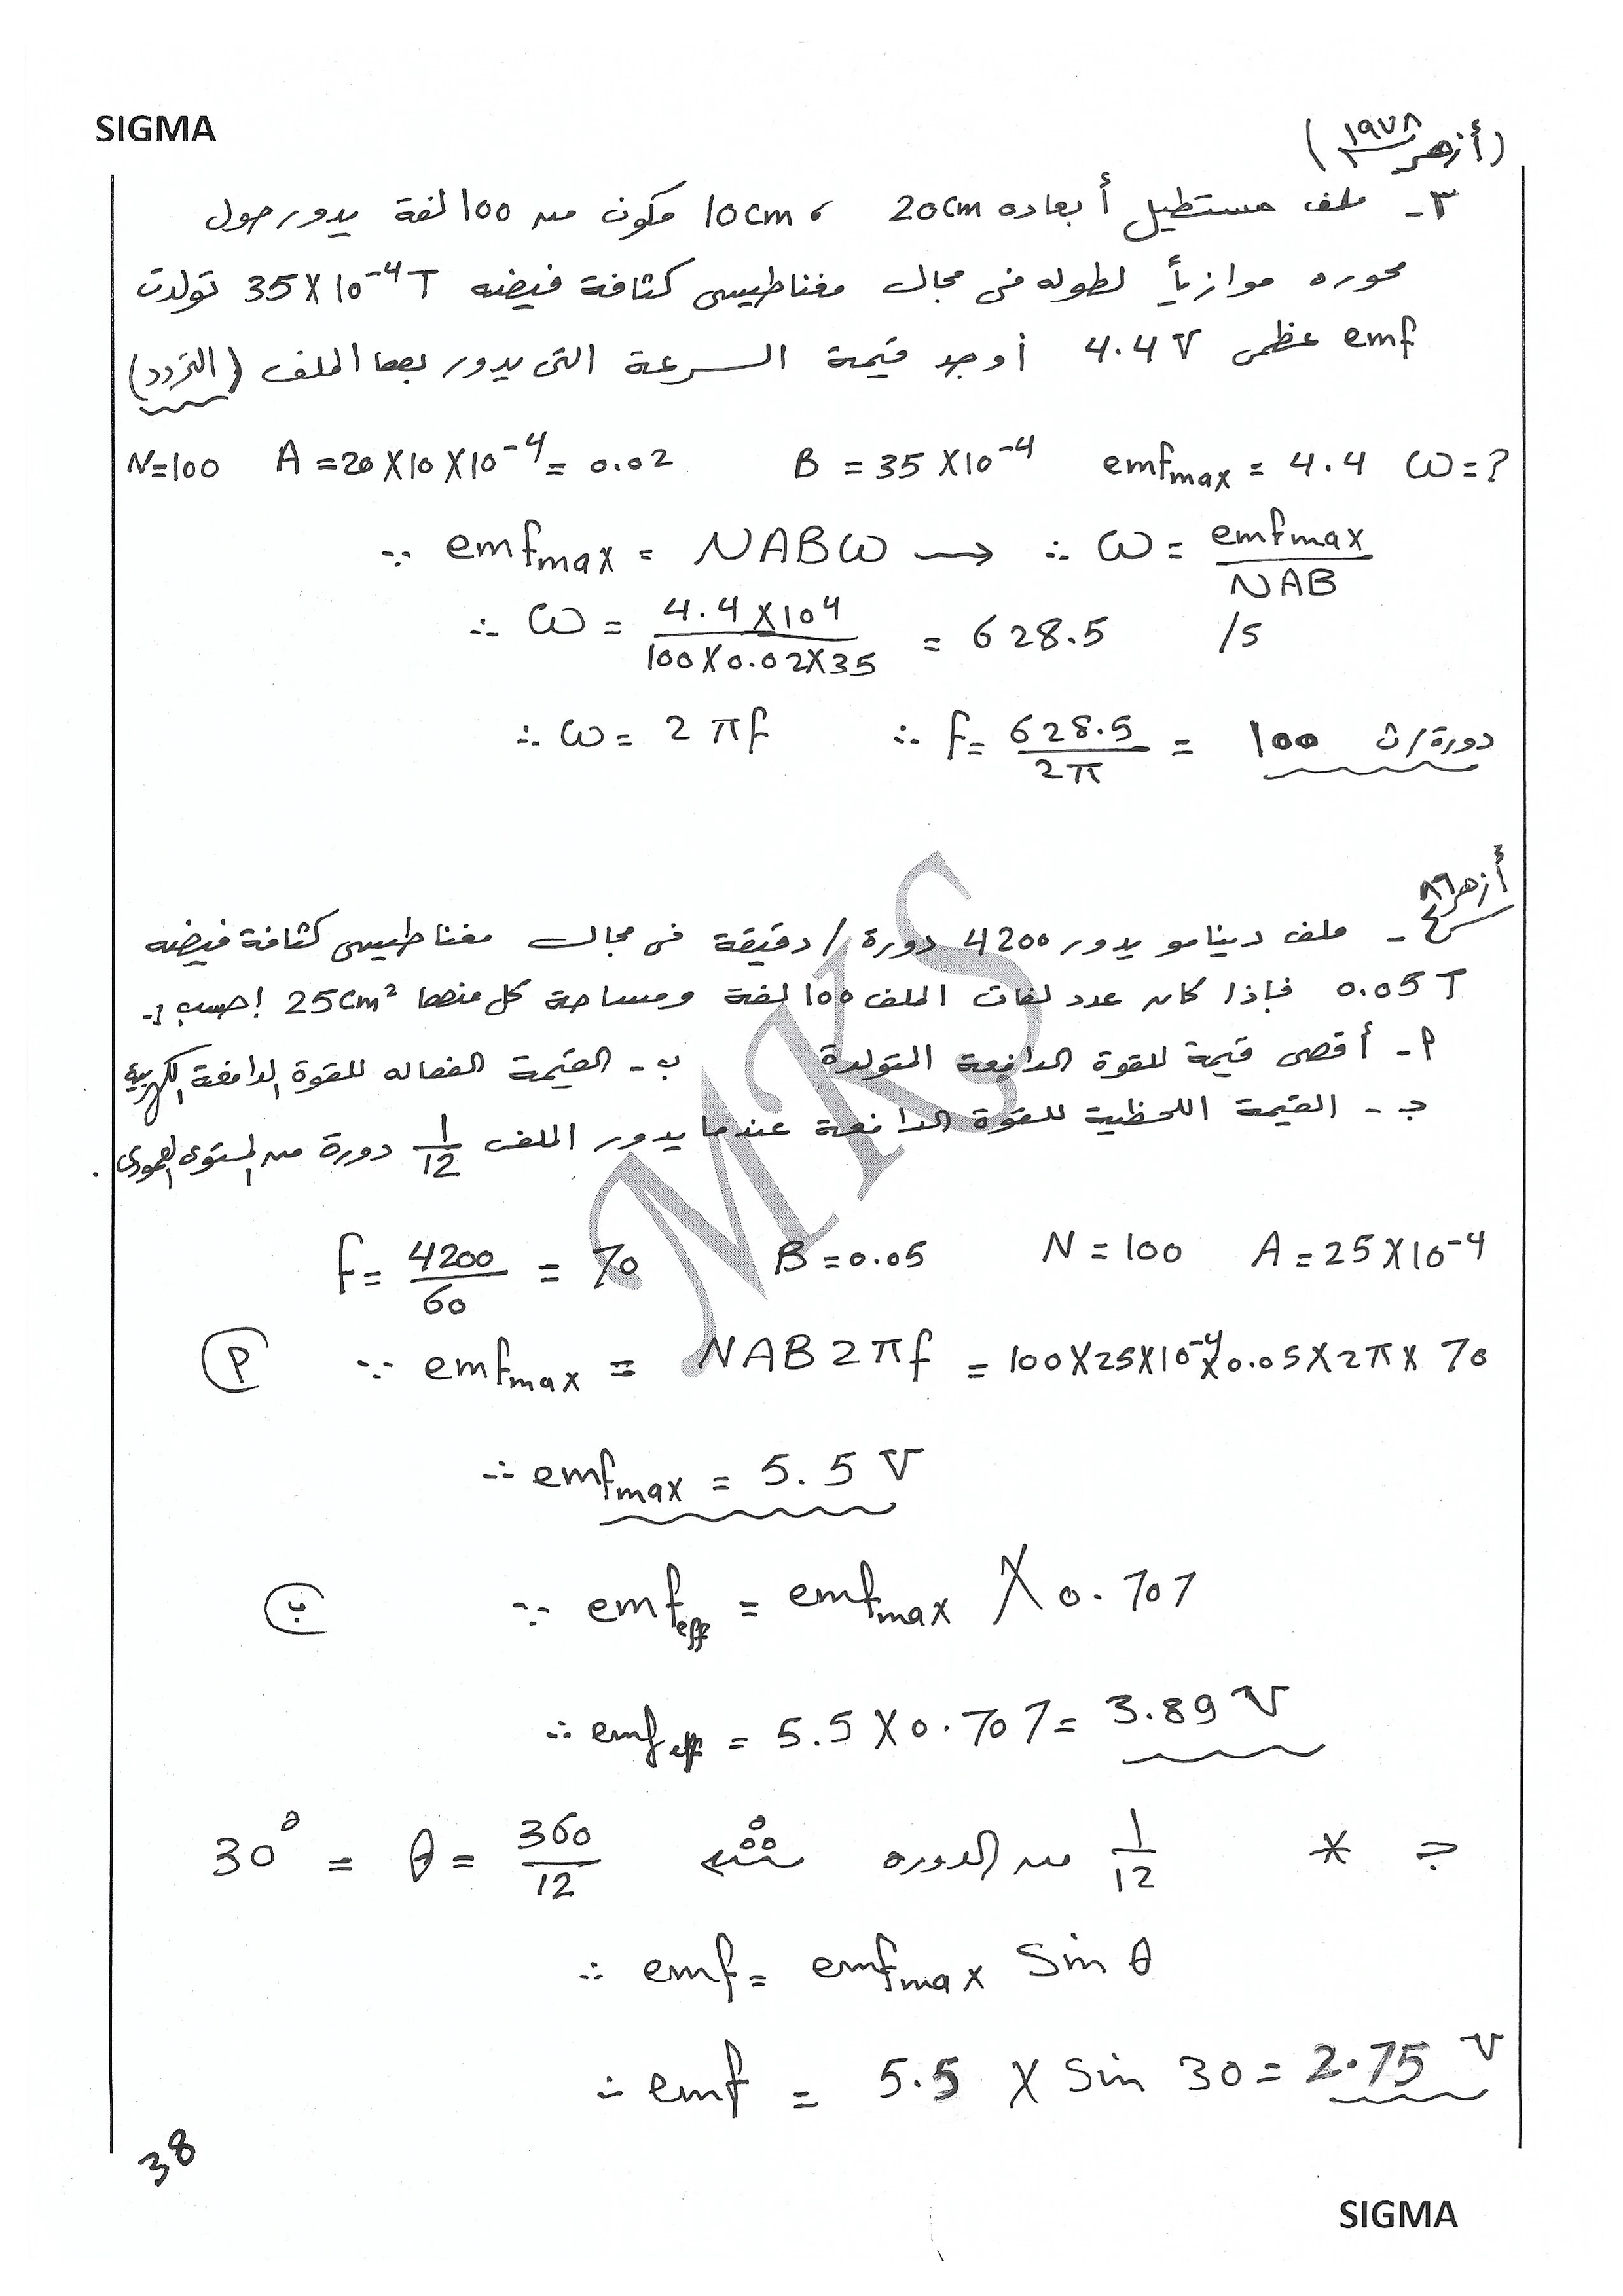 SIGMA
(أزهر ١٩٧٨)
٣- ملف مستطيل أبعاده 20cm ، 10cm مكون من 100 لفة يدور حول
محوره موازياً لطوله فى مجال مغناطيسى كثافة فيضه 35X10⁻⁴T تولدت
emf عظمى 4.4 V أوجد قيمة السرعة التى يدور بها الملف (التردد)
N=100 A=20X10X10⁻⁴=0.02 B=35X10⁻⁴ emfmax=4.4 ω=?
∵ emfmax = NABω → ∴ ω = emfmax / NAB
∴ ω = 4.4X10⁴ / 100X0.02X35 = 628.5 /s
∴ ω = 2πf ∴ f = 628.5 / 2π = 100 دورة/ث
أزهر ٨٦
٤- ملف دينامو يدور 4200 دورة/دقيقة فى مجال مغناطيسى كثافة فيضه
0.05T فإذا كان عدد لفات الملف 100 لفة ومساحة كل منها 25cm² احسب :-
أ- أقصى قيمة للقوة الدافعة المتولدة ب- القيمة الفعاله للقوة الدافعة الكهربية
جـ- القيمة اللحظية للقوة الدافعة عندما يدور الملف 1/12 دورة من المستوى العمودى .
f = 4200/60 = 70 B=0.05 N=100 A=25X10⁻⁴
أ ∵ emfmax = NAB2πf = 100X25X10⁻⁴X0.05X2πX70
∴ emfmax = 5.5 V
ب ∵ emfeff = emfmax X 0.707
∴ emfeff = 5.5X0.707 = 3.89 V
جـ * 1/12 من الدوره θ = 360/12 = 30°
∴ emf = emfmax Sin θ
∴ emf = 5.5 X Sin 30 = 2.75 V
38
SIGMA
MKS